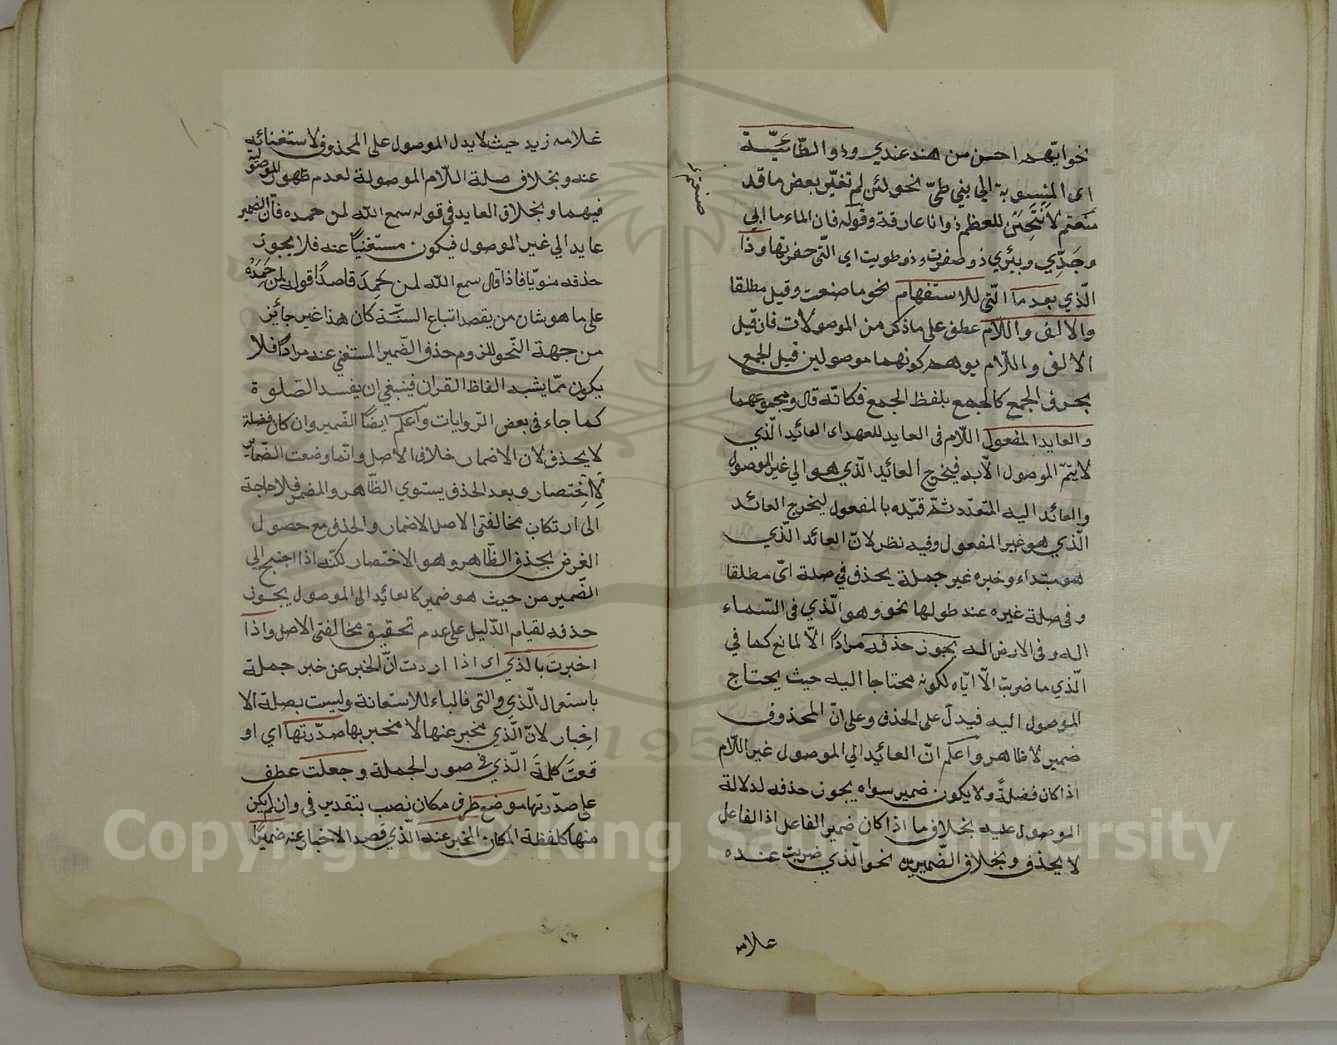 نحو ايّهم احسن من هند عندي وذو الطّائيّة
اى المنسوبة الي بني طيّ نحو لئن لم تغيّر بعض ما قد
صنعتم لانتحين للعظم ذو انا عارقه وقوله فان الماء ما ابي
وجدّي وبئري ذو حفرت وذو طويت اي الّتي حفرتها وذا
الّذي بعد ما الّتي للاستفهام نحو ما صنعت وقيل مطلقا
والالف واللّام عطف علي ما ذكر من الموصولات فان قيل
الالف واللّام يوهم كونهما موصولين قيل الجمع
بحرف الجمع كالجمع بلفظ الجمع فكانّه قال ومجموعهما
والعايد المفعول اللّام فى العايد للعهد اى العائد الّذي
لا يتمّ الموصول الّا به فيخرج العائد الّذي هو الي غير الموصول
والعائد اليه المتعدّد ثمّ قيّده بالمفعول ليخرج العائد
الّذي هو غير المفعول وفيه نظر لانّ العائد الّذي
هو مبتداء وخبره غير جملة يحذف في صلة اىّ مطلقا
وفى صلة غيره عند طولها نحو وهو الّذي فى السّماء
اله وفى الارض اله يجوز حذفه مرادًا الّا لمانع كما في
الّذي ما ضربت الّا ايّاه لكونه محتاجا اليه حيث يحتاج
الموصول اليه فيدلّ على الحذف وعلى انّ المحذوف
ضمير لا ظاهر واعلم انّ العائد الي الموصول غير اللّام
اذا كان فضلةً ولا يكون ضمير سواه يجوز حذفه لدلالة
الموصول عليه بخلاف ما اذا كان ضمير الفاعل اذ الفاعل
لا يحذف وبخلاف الضّميرين نحو الّذي ضربت عنده
غلامه
صنعتم
غلامه زيد حيث لا يدل الموصول على المحذوف لاستغنائه
عنه وبخلاف صلة اللّام الموصولة لعدم ظهور الموصول
فيهما وبخلاف العايد فى قوله سمع اللّه لمن حمده فانّ الضمير
عايد الي غير الموصول فيكون مستغنيًا عنه فلا يجوز
حذفه منويّا فاذا قال سمع اللّه لمن حمد قاصدًا قوله لمن حمده
على ما هو شان من يقصد اتباع السنّة كان هذا غير جائز
من جهة النّحو للزوم حذف الضّمير المستغني عنه مرادًا فلا
يكون ممّا يشبه الفاظ القران فينبغي ان يفسد الصّلوة
كما جاء فى بعض الرّوايات واعلم ايضًا الضّمير وان كان فضلة
لا يحذف لان الاضمار خلاف الاصل وانّما وضعت الضّماير
للاختصار وبعد الحذف يستوي الظّاهر والمضمر فلا حاجة
الى ارتكاب مخالفتى الاصل الاضمار والحذف مع حصول
الغرض بحذف الظّاهر وهو الاختصار لكنّه اذا احتيج الي
الضّمير من حيث هو ضمير كالعائد الى الموصول يجوز
حذفه لقيام الدّليل على عدم تحقيق مخالفتى الاصل واذا
اخبرت بالّذي اى اذا اردت انّ الخبر عن خبر جملة
باستعمال الّذي والتي فالباء للاستعانة وليست بصلة الا
اخبار لانّ الّذي مخبر عنها لا مخبر بها صدّرتها اي او
قعت كلمة الّذي فى صور الجملة وجعلت عطف
على صدّرتها موضع ظرف مكان نصب بتقدير فى وان لم يكن
منها كلفظة المكان المخبر عنه الّذي قصد الاخبار عنه ضميرًا
Copyright © King Saud University
1957